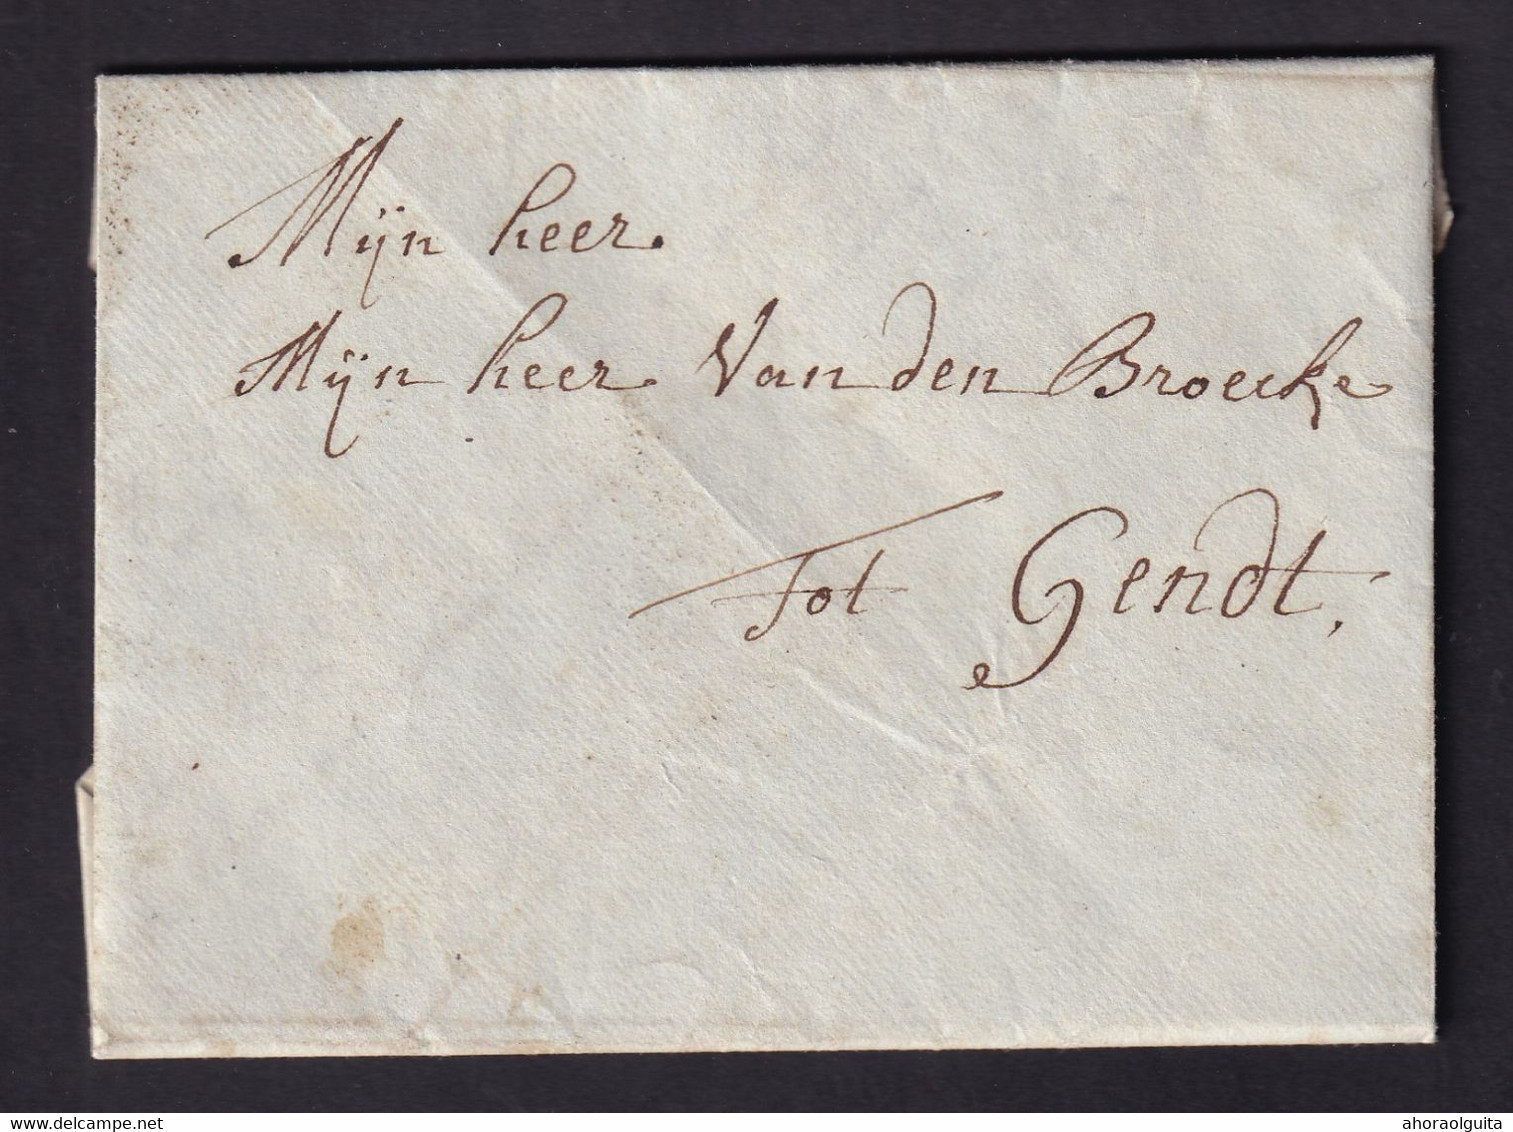 Mÿn heer.
Mÿn heer Van den Broecke
Tot Gendt,
www.delcampe.net
ahoraolguita